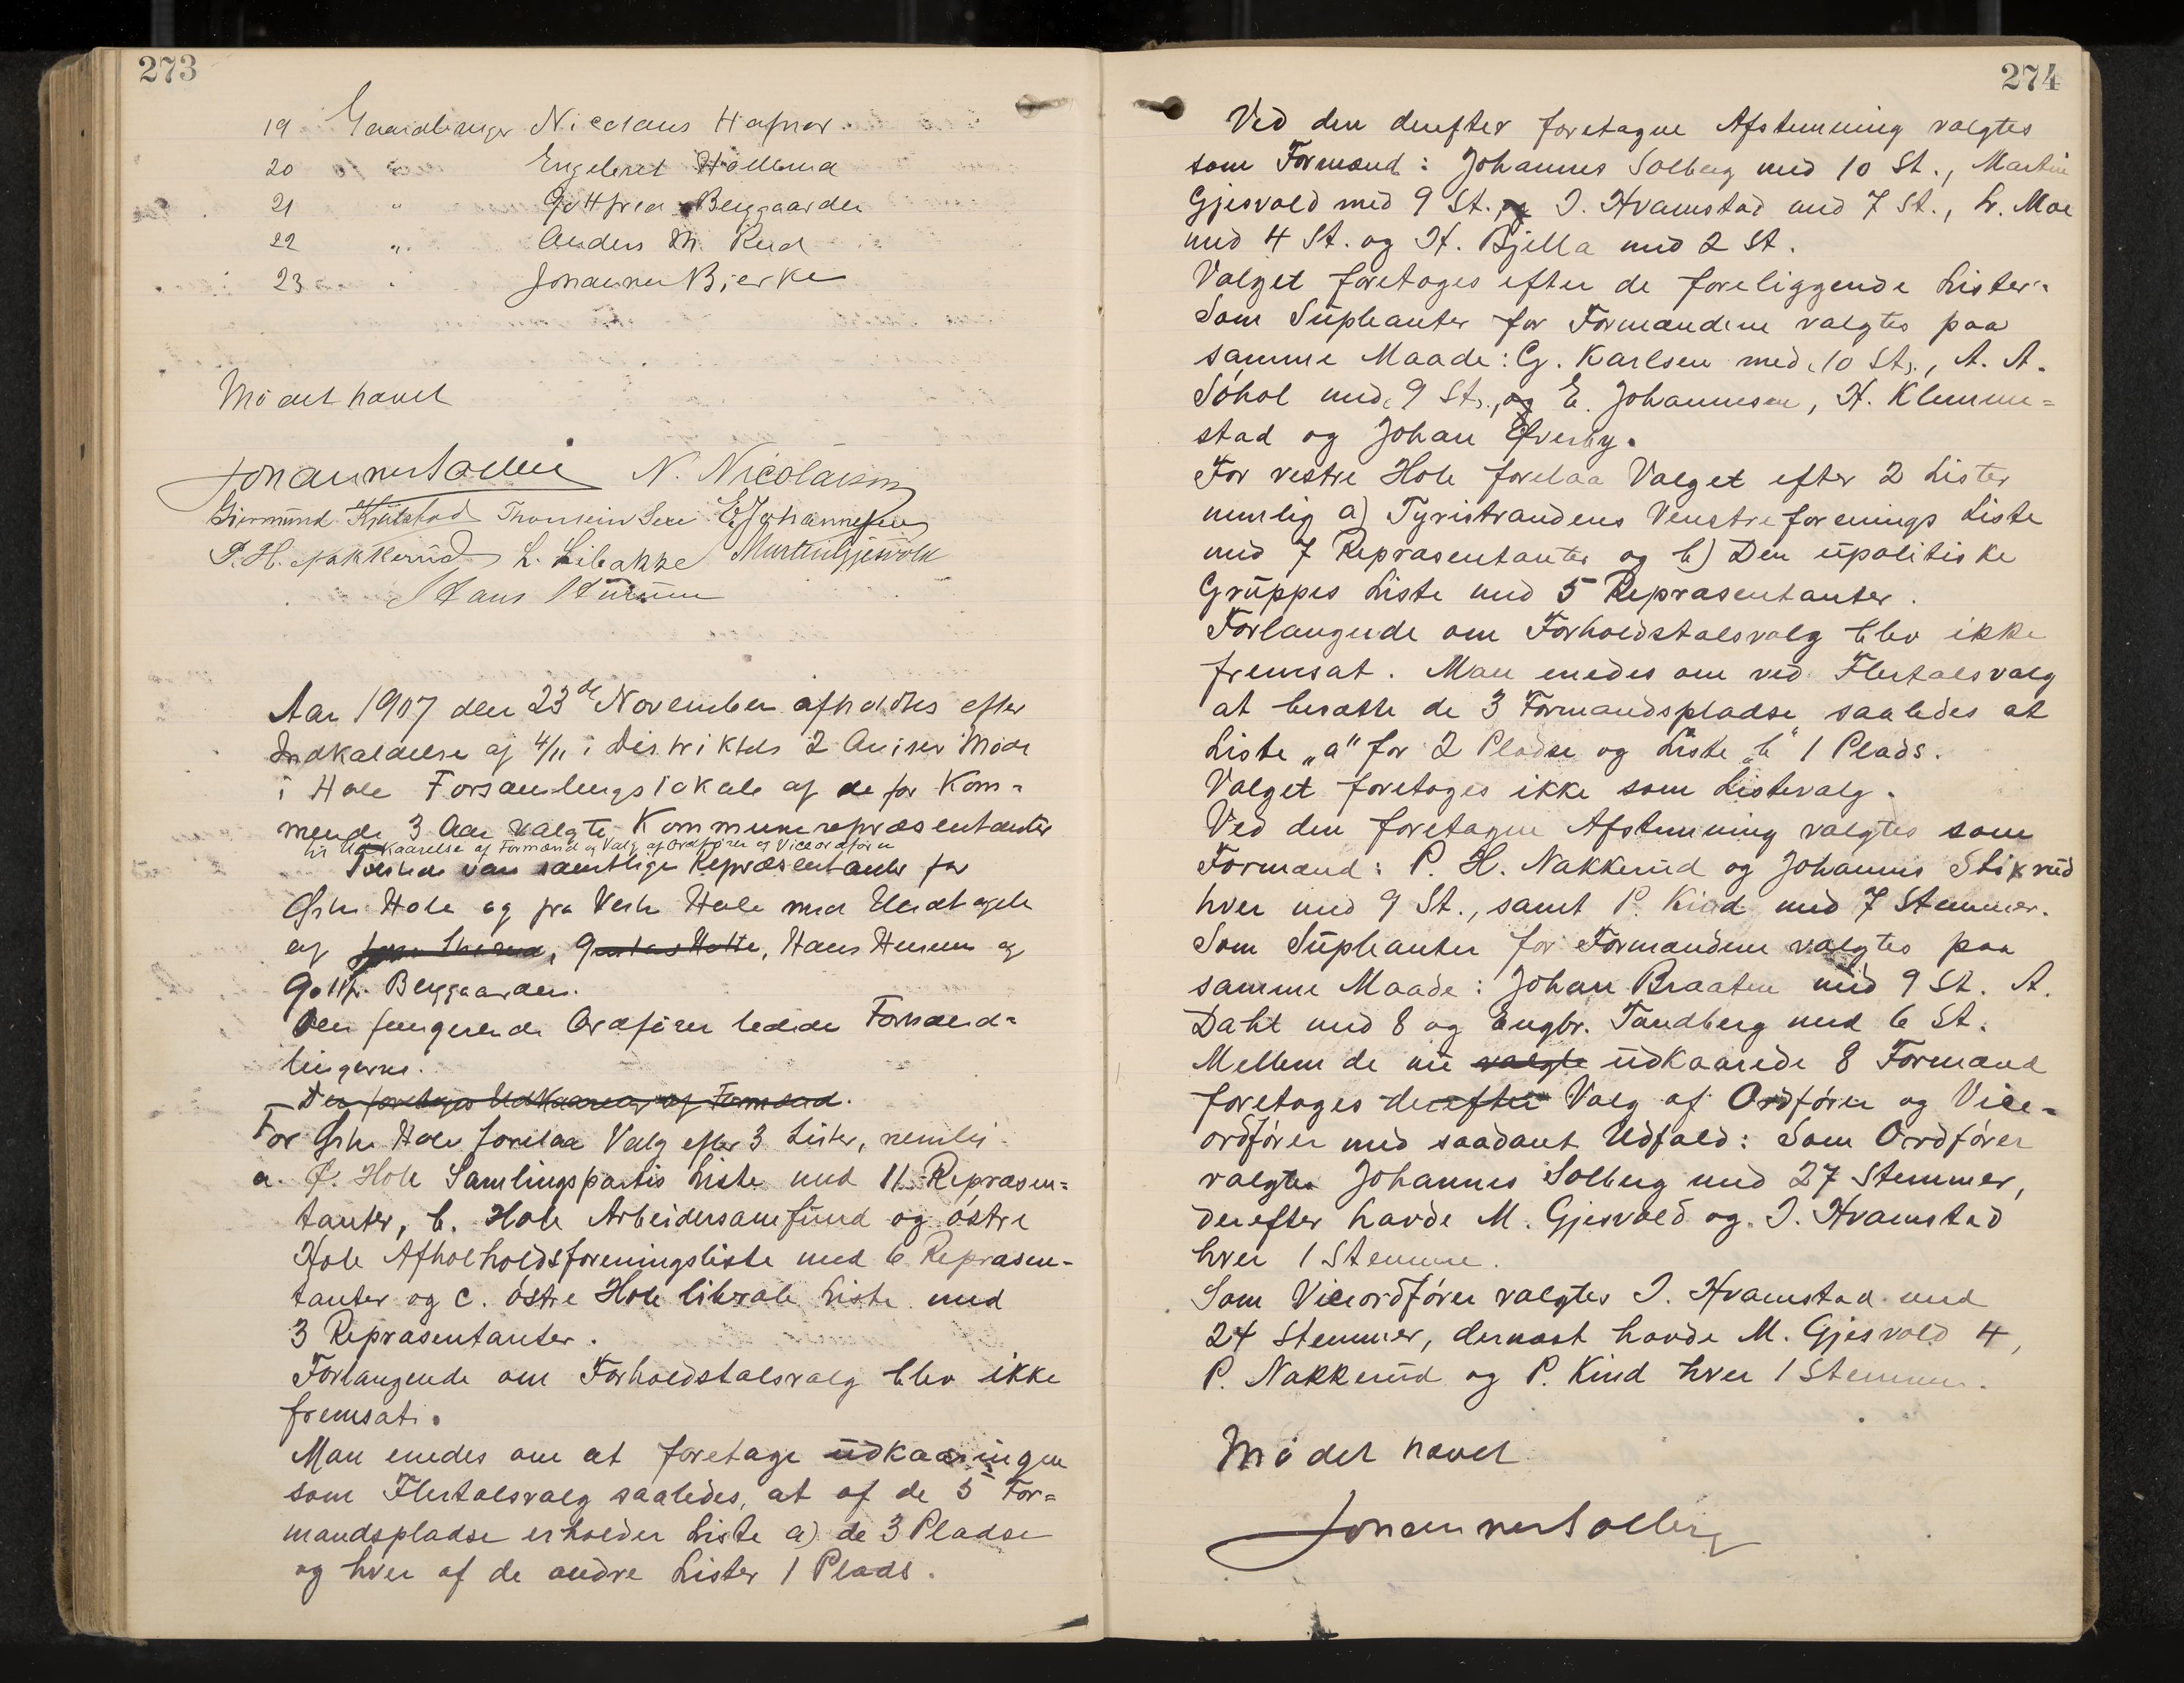 273
19 Gaardbruger Nicolaus Hafnor
20 " Engebret Hollerud
21 " Gottfred Berggaarden
22 " Anders M. Rud
23 " Johannes Bjerke
Mødet hævet
Johannes Solberg N. Nicolaisen
Thorstein E Johannesen
P. H. Nakkerud L. Libakke Martin Gjesvold
Hans Hurum
Aar 1907 den 23de November afholdtes efter
Indkaldelse af 4/11 i Distriktets 2 Aviser Møde
i Hole Forsamlingslokale af de for Kom=
mende 3 Aar valgte Kommunerepræsentanter
til Udkaarelse af Formænd og Valg af Ordfører og Viceordfører
Tilstede var samtlige Repræsentanter for
Østre Hole og fra Vestre Hole med Undtagelse
af Hans Hurum og
Gottfr. Berggaarden.
Den fungerende Ordfører ledede Forhand=
lingerne.
Der foretoges Udkaaring af Formænd.
For Østre Hole forelaa Valg efter 3 Lister, nemlig
a. Ø. Hole Samlingspartis Liste med 11 Repræsen=
tanter, b. Hole Arbeidersamfund og østre
Hole Afholdsforeningsliste med 6 Repræsen-
tanter og c. østre Hole liberale Liste med
3 Repræsentanter.
Forlangende om Forholdstalsvalg blev ikke
fremsat.
Man enedes om at foretage udkaaringen
som Flertalsvalg saaledes, at af de 5 For=
mandspladse erholder Liste a) de 3 Pladse
og hver af de andre Lister 1 Plads.
274
Ved den derefter foretagne Afstemning valgtes
som Formænd: Johannes Solberg med 10 St., Martin
Gjesvold med 9 St. og I. Hvamstad med 7 St., L. Moe
med 4 St. og H. Bjella med 2 St.
Valget foretoges efter de foreliggende Lister.
Som Supleanter for Formændene valgtes paa
samme Maade: G. Karlsen med 10 St., A. A.
Sohol med 9 St., og E. Johannesen, H. Klemme=
stad og Johan Øverby.
For vestre Hole forelaa Valget efter 2 Lister
nemlig a) Tyristrandens Venstreforenings Liste
med 7 Repræsentanter og b) Den upolitiske
Gruppes Liste med 5 Repræsentanter.
Forlangende om Forholdstalsvalg blev ikke
fremsat. Man enedes om ved Flertalsvalg
at besætte de 3 Formandspladse saaledes at
Liste „a" for 2 Pladse og Liste „b" 1 Plads.
Valget foretoges ikke som Listevalg.
Ved den foretagne Afstemning valgtes som
Formænd: P. H. Nakkerud og Johannes Stikrud
hver med 9 St., samt P. Kind med 7 Stemmer.
Som Supleanter for Formændene valgtes paa
samme Maade: Johan Braaten med 9 St. A.
Dahl med 8 og Engbr. Tandberg med 6 St.
Mellem de nu valgte udkaarede 8 Formænd
foretoges derefter Valg af Ordfører og Vice-
ordfører med saadant Udfald: Som Ordfører
valgtes Johannes Solberg med 27 Stemmer,
derefter havde M. Gjesvold og I. Hvamstad
hver 1 Stemme.
Som Viceordfører valgtes I. Hvamstad med
24 Stemmer, dernæst havde M. Gjesvold 4,
P. Nakkerud og P. Kind hver 1 Stemme.
Mødet hævet
Johannes Solberg